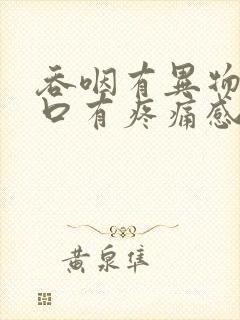 吞咽有異物
口有疼痛感
黄泉隼